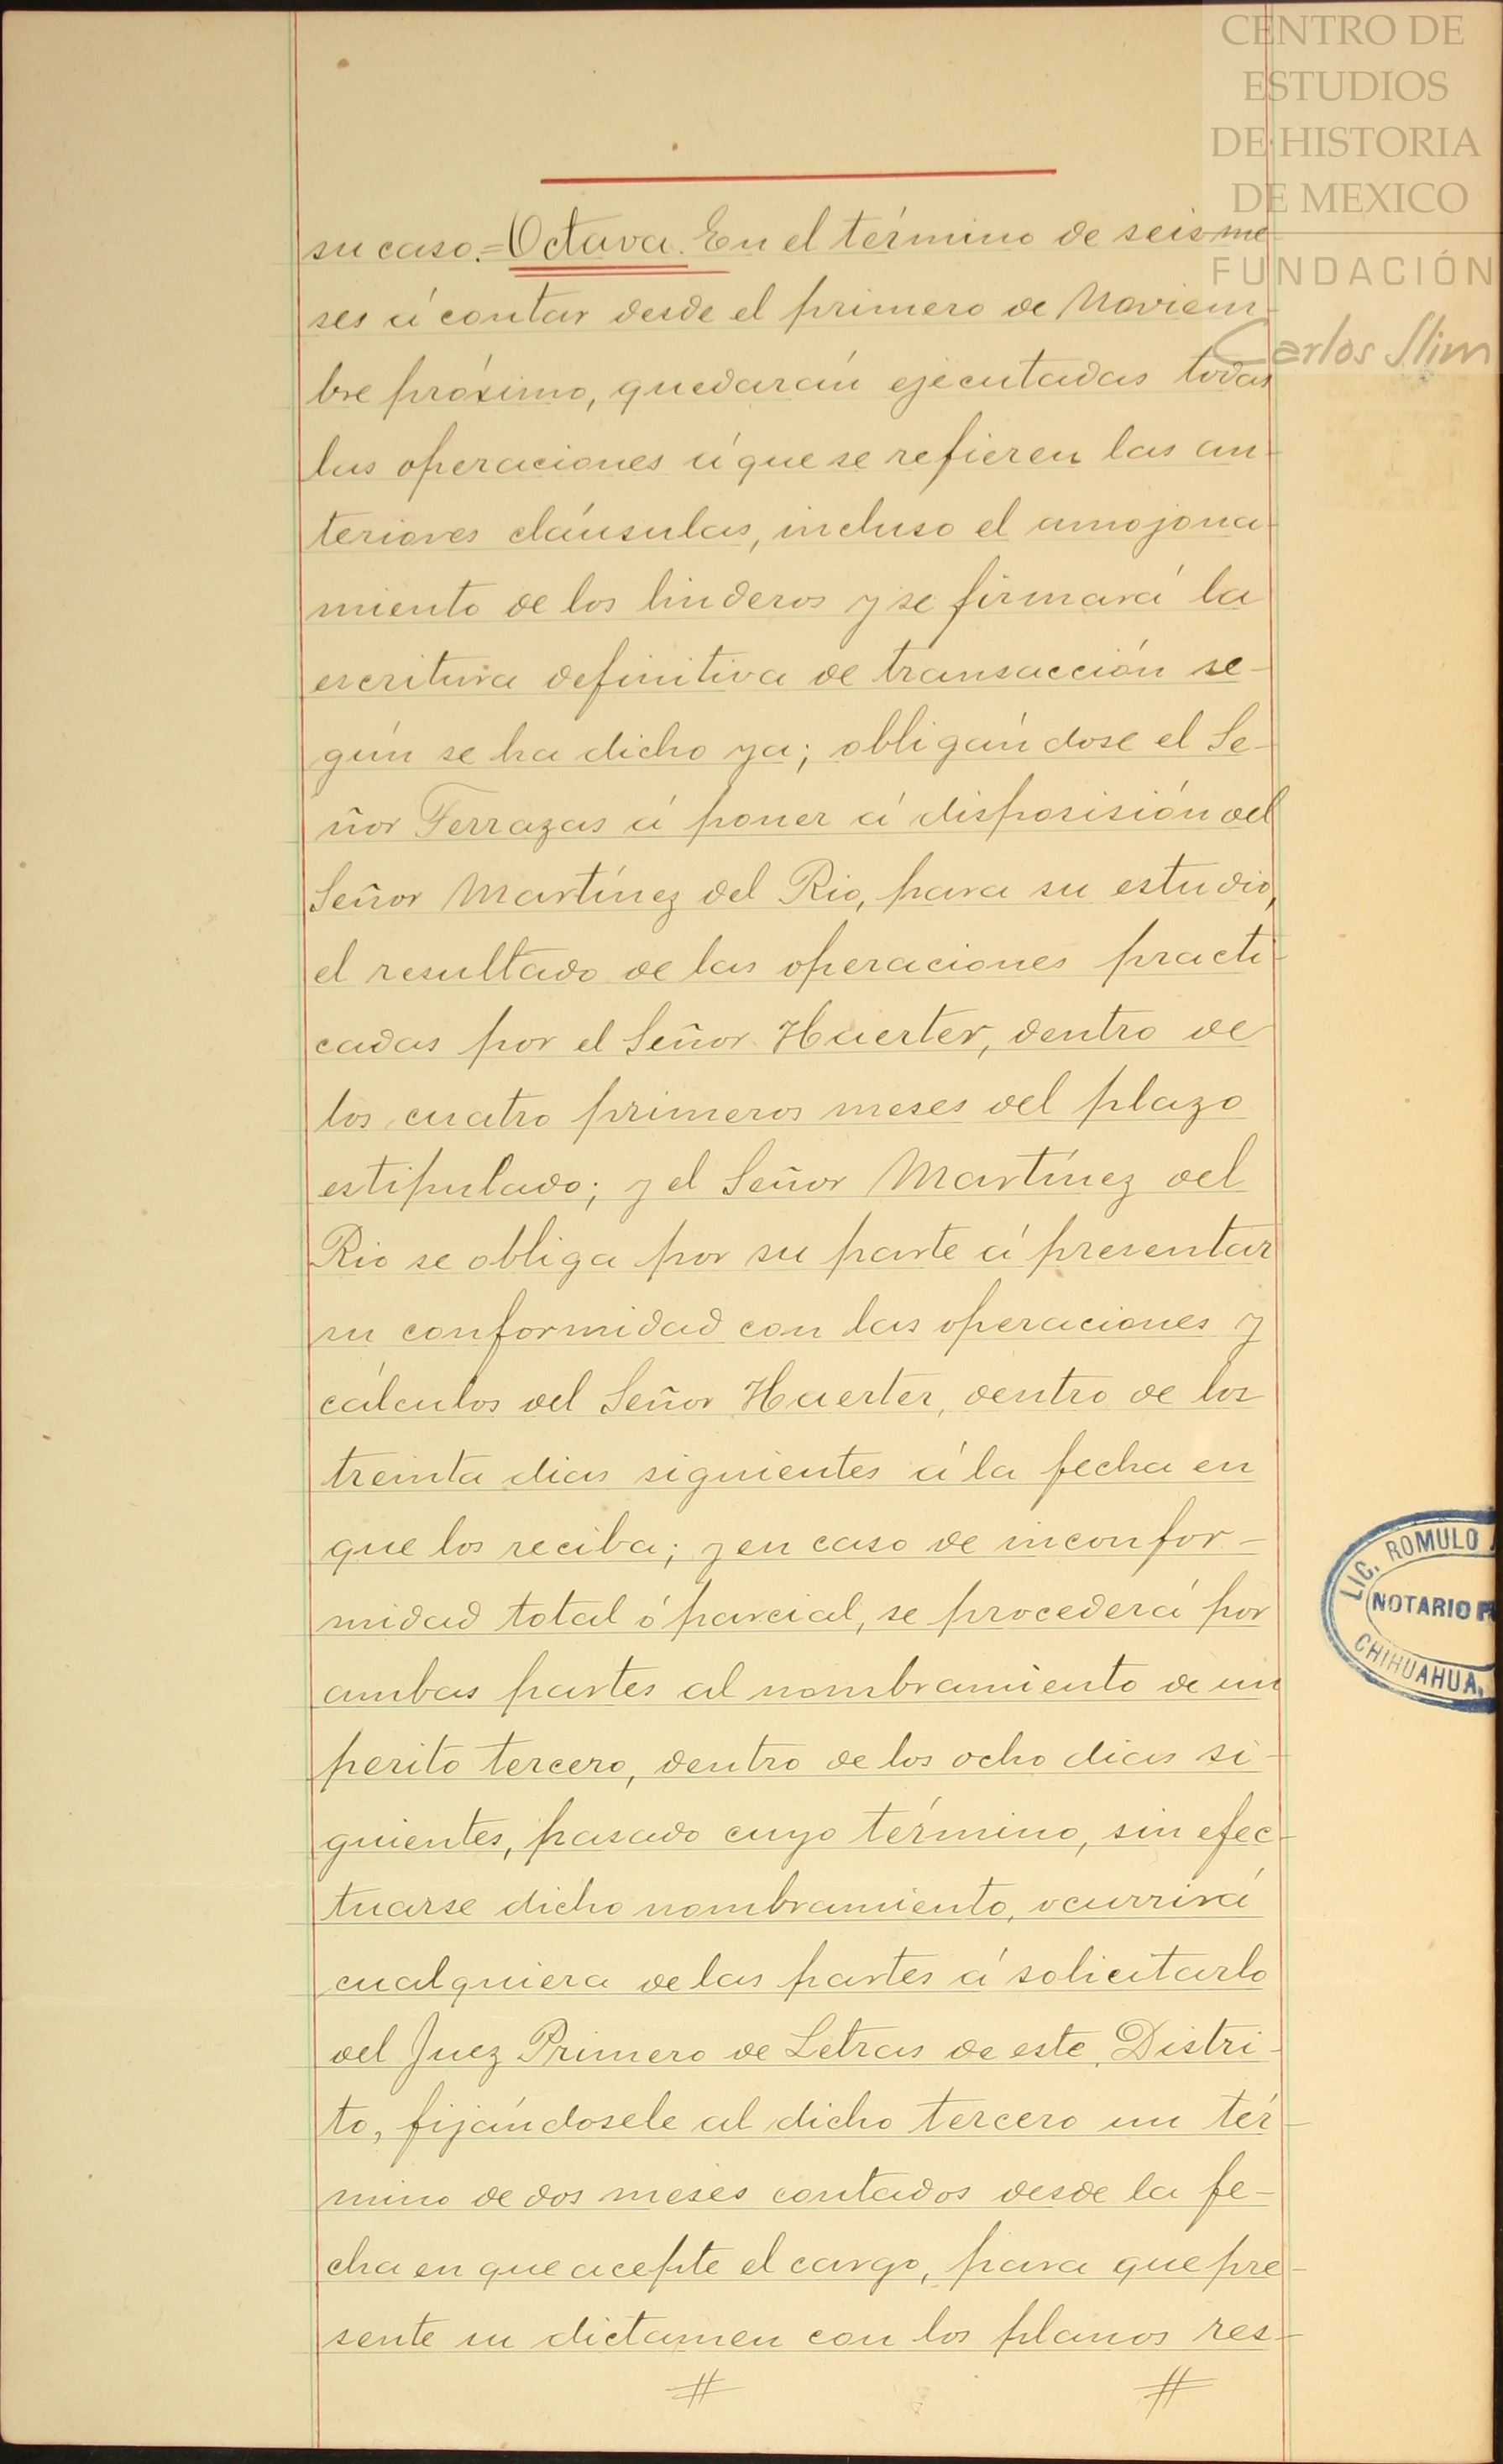 CENTRO DE
ESTUDIOS
DE HISTORIA
DE MEXICO
FUNDACIÓN
Carlos Slim
su caso.=Octava. En el término de seis me-
ses á contar desde el primero de Noviem-
bre próximo, quedarán ejecutadas todas
las operaciones á que se refieren las an-
teriores cláusulas, incluso el amojona-
miento de los linderos y se firmará la
escritura definitiva de transacción se-
gún se ha dicho ya; obligándose el Se-
ñor Terrazas á poner á disposisión del
Señor Martínez del Rio, para su estudio,
el resultado de las operaciones practi-
cadas por el Señor Huerter, dentro de
los cuatro primeros meses del plazo
estipulado; y el Señor Martínez del
Rio se obliga por su parte á presentar
su conformidad con las operaciones y
cálculos del Señor Huerter, dentro de los
treinta dias siguientes á la fecha en
que los reciba; y en caso de inconfor-
midad total ó parcial, se procederá por
ambas partes al nombramiento de un
perito tercero, dentro de los ocho dias si-
guientes, pasado cuyo término, sin efec-
tuarse dicho nombramiento, ocurrirá
cualquiera de las partes á solicitarlo
del Juez Primero de Letras de este Distri-
to, fijándosele al dicho tercero un tér-
mino de dos meses contados desde la fe-
cha en que acepte el cargo, para que pre-
sente su dictamen con los planos res-
LIC. ROMULO
NOTARIO P
CHIHUAHUA.